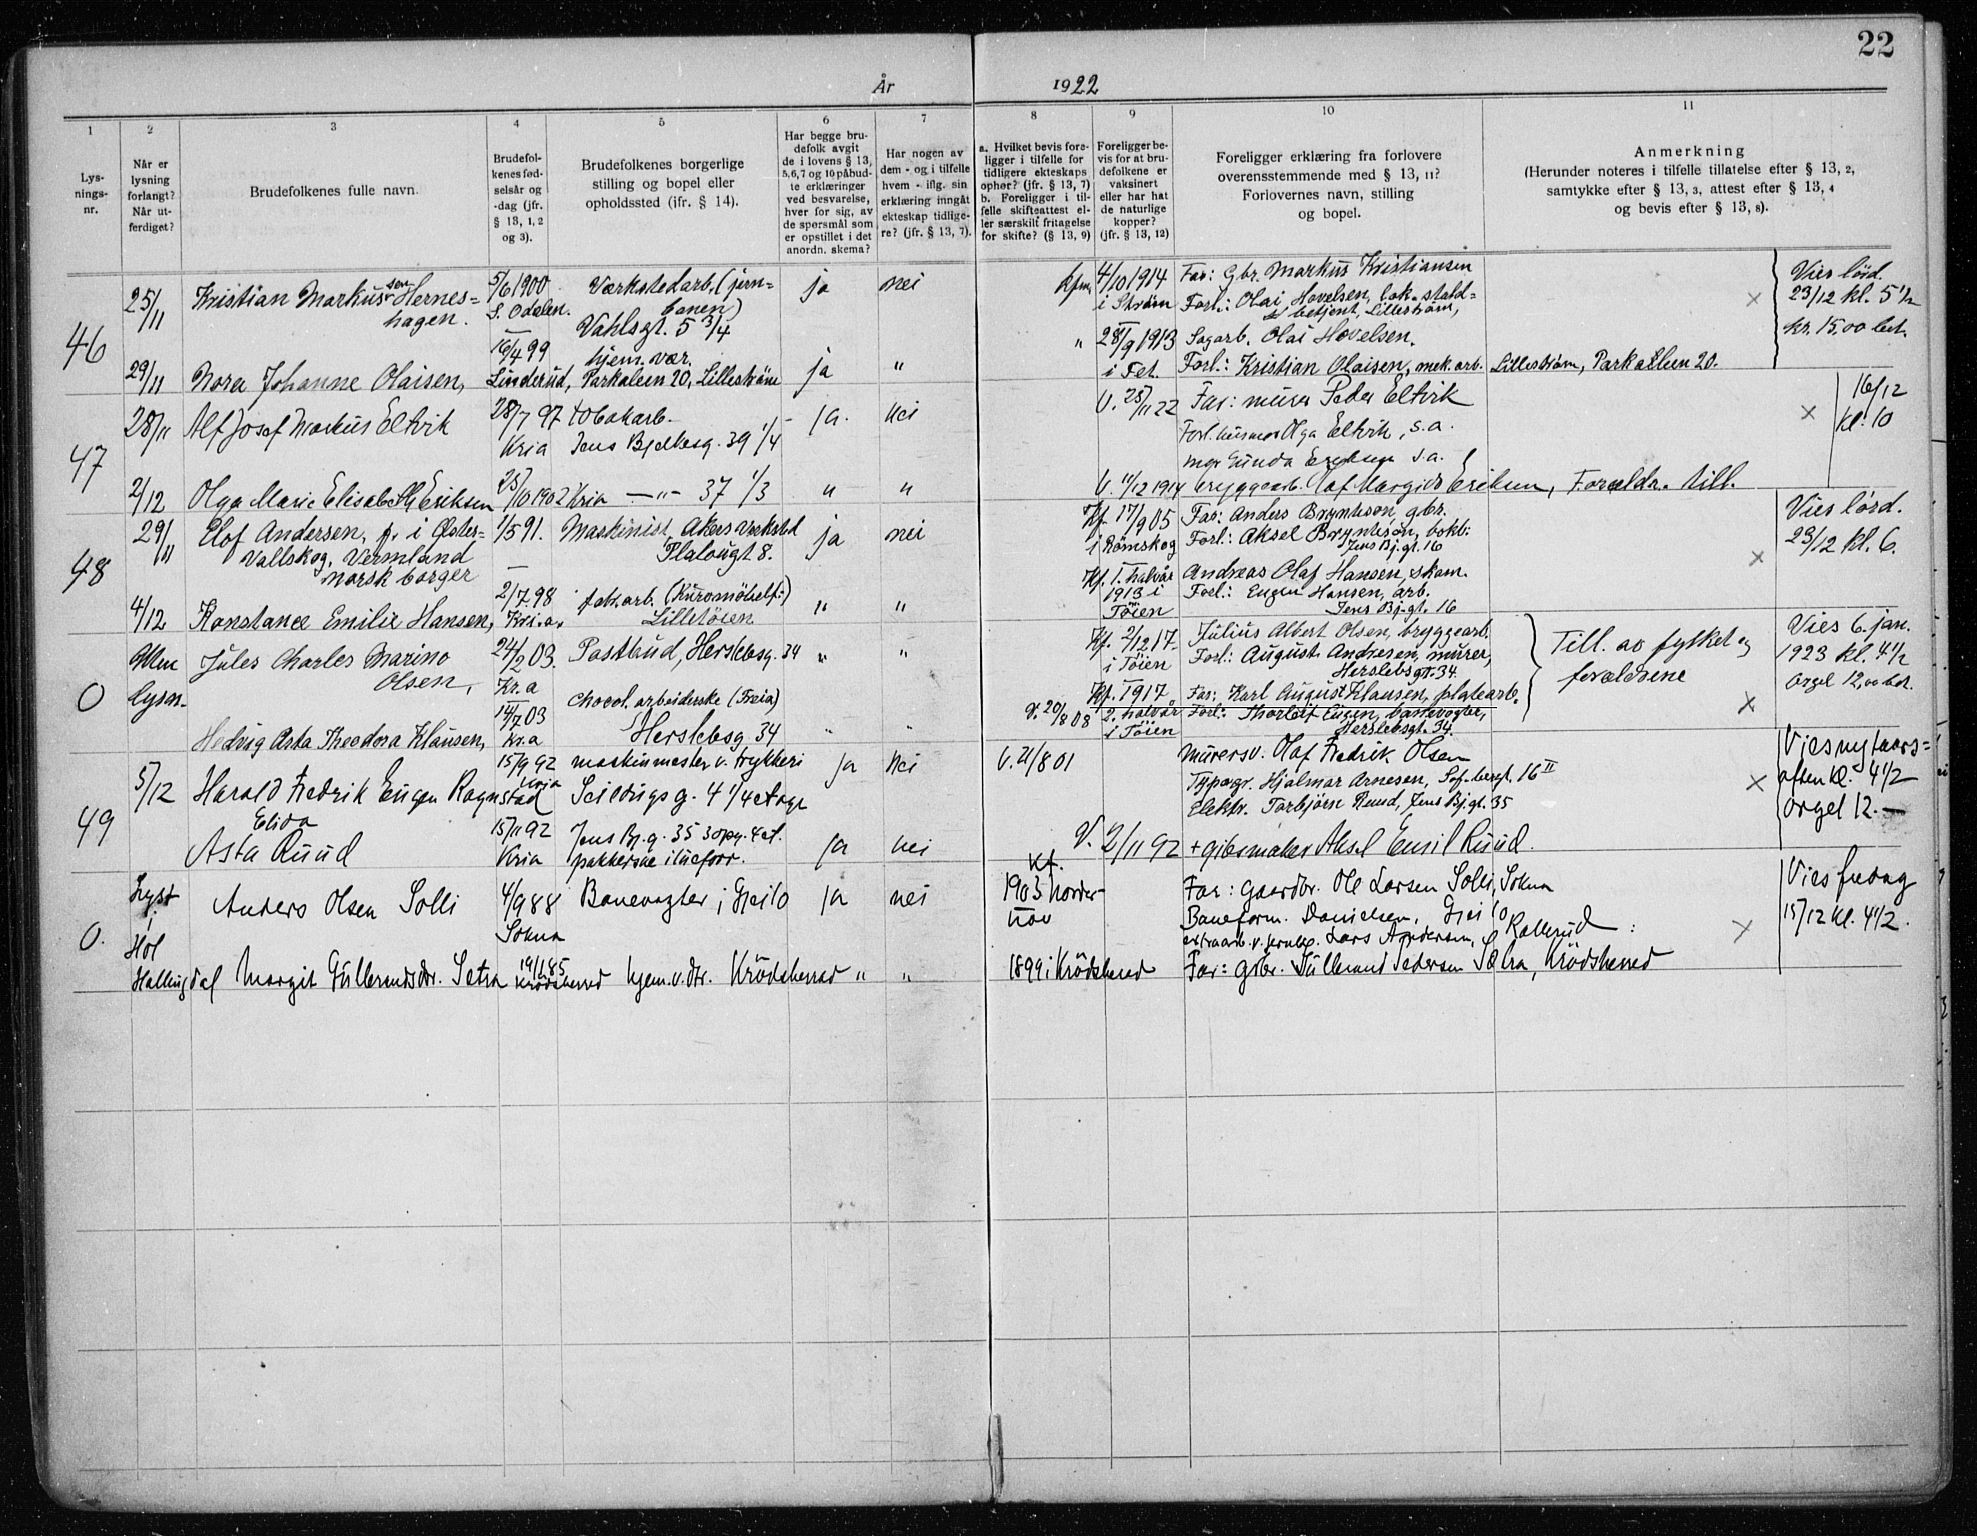 22
År 1922
1 2 3 4 5 6 7 8 9 10 11
Lys-
nings-
nr.
Når er
lysning
forlangt?
Når ut-
ferdiget?
Brudefolkenes fulle navn.
Brudefol-
kenes fød-
selsår og
-dag (jfr.
§ 13, 1, 2
og 3).
Brudefolkenes borgerlige
stilling og bopel eller
opholdssted (jfr. § 14).
Har begge bru-
defolk avgit
de i lovens § 13,
5, 6, 7 og 10 påbud-
te erklæringer
ved besvarelse,
hver for sig, av
de spørsmål som
er opstillet i det
anordn. skema?
Har nogen av
dem - og i tilfelle
hvem - iflg. sin
erklæring inngåt
ekteskap tidlige-
re? (jfr. § 13, 7).
a. Hvilket bevis fore-
ligger i tilfelle for
tidligere ekteskaps
ophør? (jfr. § 13, 7)
b. Foreligger i til-
felle skifteattest el-
ler særskilt fritagelse
for skifte? (§ 13, 9)
Foreligger be-
vis for at bru-
defolkene er
vaksinert
eller har hat
de naturlige
kopper?
(jfr. § 13, 12)
Foreligger erklæring fra forlovere
overensstemmende med § 13, 11?
Forlovernes navn, stilling
og bopel.
Anmerkning
(Herunder noteres i tilfelle tillatelse efter § 13, 2,
samtykke efter § 13, 3, attest efter § 13, 4
og bevis efter § 13, 8).
46
25/11
Kristian Markussen Hernes-
hagen.
5/6 1900
S. Odalen.
Værkstedarb. (jern-
banen)
Vahlsgt. 5 3/4
ja nei
4/10 1914
i Strøm
Far: Gbr. Markus Kristiansen
Forl.: Olai Hovelsen, lok. stald-
betjent, Lillestrøm,
×
Vies lørd.
23/12 kl. 5 1/2
kr. 15,00 bet.
29/11
Nora Johanne Olaisen,
16/4 99
Linderud,
hjem.vær.
Parkaleen 20, Lillestrøm
ja "
" 28/9 1913
i Fet.
Sagarb. Olai Hovelsen.
Forl.: Kristian Olaisen, mek. arb. Lillestrøm, Parkalleen 20.
47
28/11
Alf Josef Markus Eltvik
28/7 97
Kria
tobakarb.
Jens Bjelkesg. 39 1/4
ja. nei
V. 25/11 22
Far: murer Peder Eltvik
Forl. husmor Olga Eltvik, s.a.
Gunda s.a.
×
16/12
kl. 10
2/12
Olga Marie Elisabeth Eriksen
25/10 1902 Kria
—"— 37 1/3
" "
V. 11/12 1914
bryggearb. Olaf Eriksen, Forældr. till.
48
29/11
Elof Andersen, f. i Øster-
Vallskog, Vermland
norsk borger
1/5 91.
Maskinist, Akers Værksted
Platougt 8.
ja nei
Kf. 17/9 05
i Rømskog
Far: Anders Bryntesøn, gbr.
Forl.: Aksel Bryntesøn, bokb.
Jens Bj.gt. 16
×
Vies lørd.
23/12 kl. 6.
4/12
Konstance Emilie Hansen,
2/7 98
Kri.a.
fabr.arb.
Lilletøien
" "
Kf. 1. halvår
1913 i
Tøien
Andreas Olaf Hansen, skom.
Forl.: Eugen Hansen, arb.
Jens Bj.gt. 16
0
Uten
lysn.
Jules Charles Marino
Olsen,
24/2 03.
Kr.a
Postbud, Herslebsg. 34
" "
Kf. 2/12 17.
i Tøien
Julius Albert Olsen, bryggearb.
Forl.: August Andresen, murer,
Herslebsgt. 34.
Till. av fylket og
forældrene
×
Vies 6. jan.
1923 kl. 4 1/2
Orgel 12,00 bet.
Hedvig Asta Theodora Klausen,
14/7 03
Kr.a
chocol. arbeiderske (Freia)
Herslebsg. 34
" "
V. 20/8 08
Kf. 1917
2. halvår
i Tøien
Far: Karl August Klausen, platearb.
Forl.: Thorleif Eugen,
Herslebsgt. 34.
49
5/12
Harald Fredrik Eugen Ragnstad
15/9 92
Kria
maskinmester v. trykkeri
Seildugsg. 4 1/4
ja nei
V. 21/8 01
murersv. Olaf Fredrik Olsen
Typogr. Hjalmar Arnesen, Sof.bergt. 16 II
Elektr. Torbjørn Ruud, Jens Bj.gt. 35
×
Vies nytaars-
aften kl. 4 1/2
Orgel 12.—
Elida
Asta Ruud
15/11 92
Kria
Jens Bj.g. 35
pakkerske
ja nei
V. 2/11 92
+ gibsmaker Aksel Emil Ruud.
0.
Lyst
i
Hol
Hallingdal
Anders Olsen Solli
4/9 88
Sokna
Banevogter i Gjeilo
ja nei
Kf.
1903 Norder-
hov
Far: gaardbr. Ole Larsen Solli, Sokna
Baneform. Danielsen, Gjeilo
Lars Andersen,
×
Vies fredag
15/12 kl. 4 1/2.
Margit Gullerudsdtr. Sætra
Krødsherred
hjem.v.dtr. Krødsherrad
" "
1899 i Krödsherred
Far: gbr. Pedersen Sætra, Krødsherred